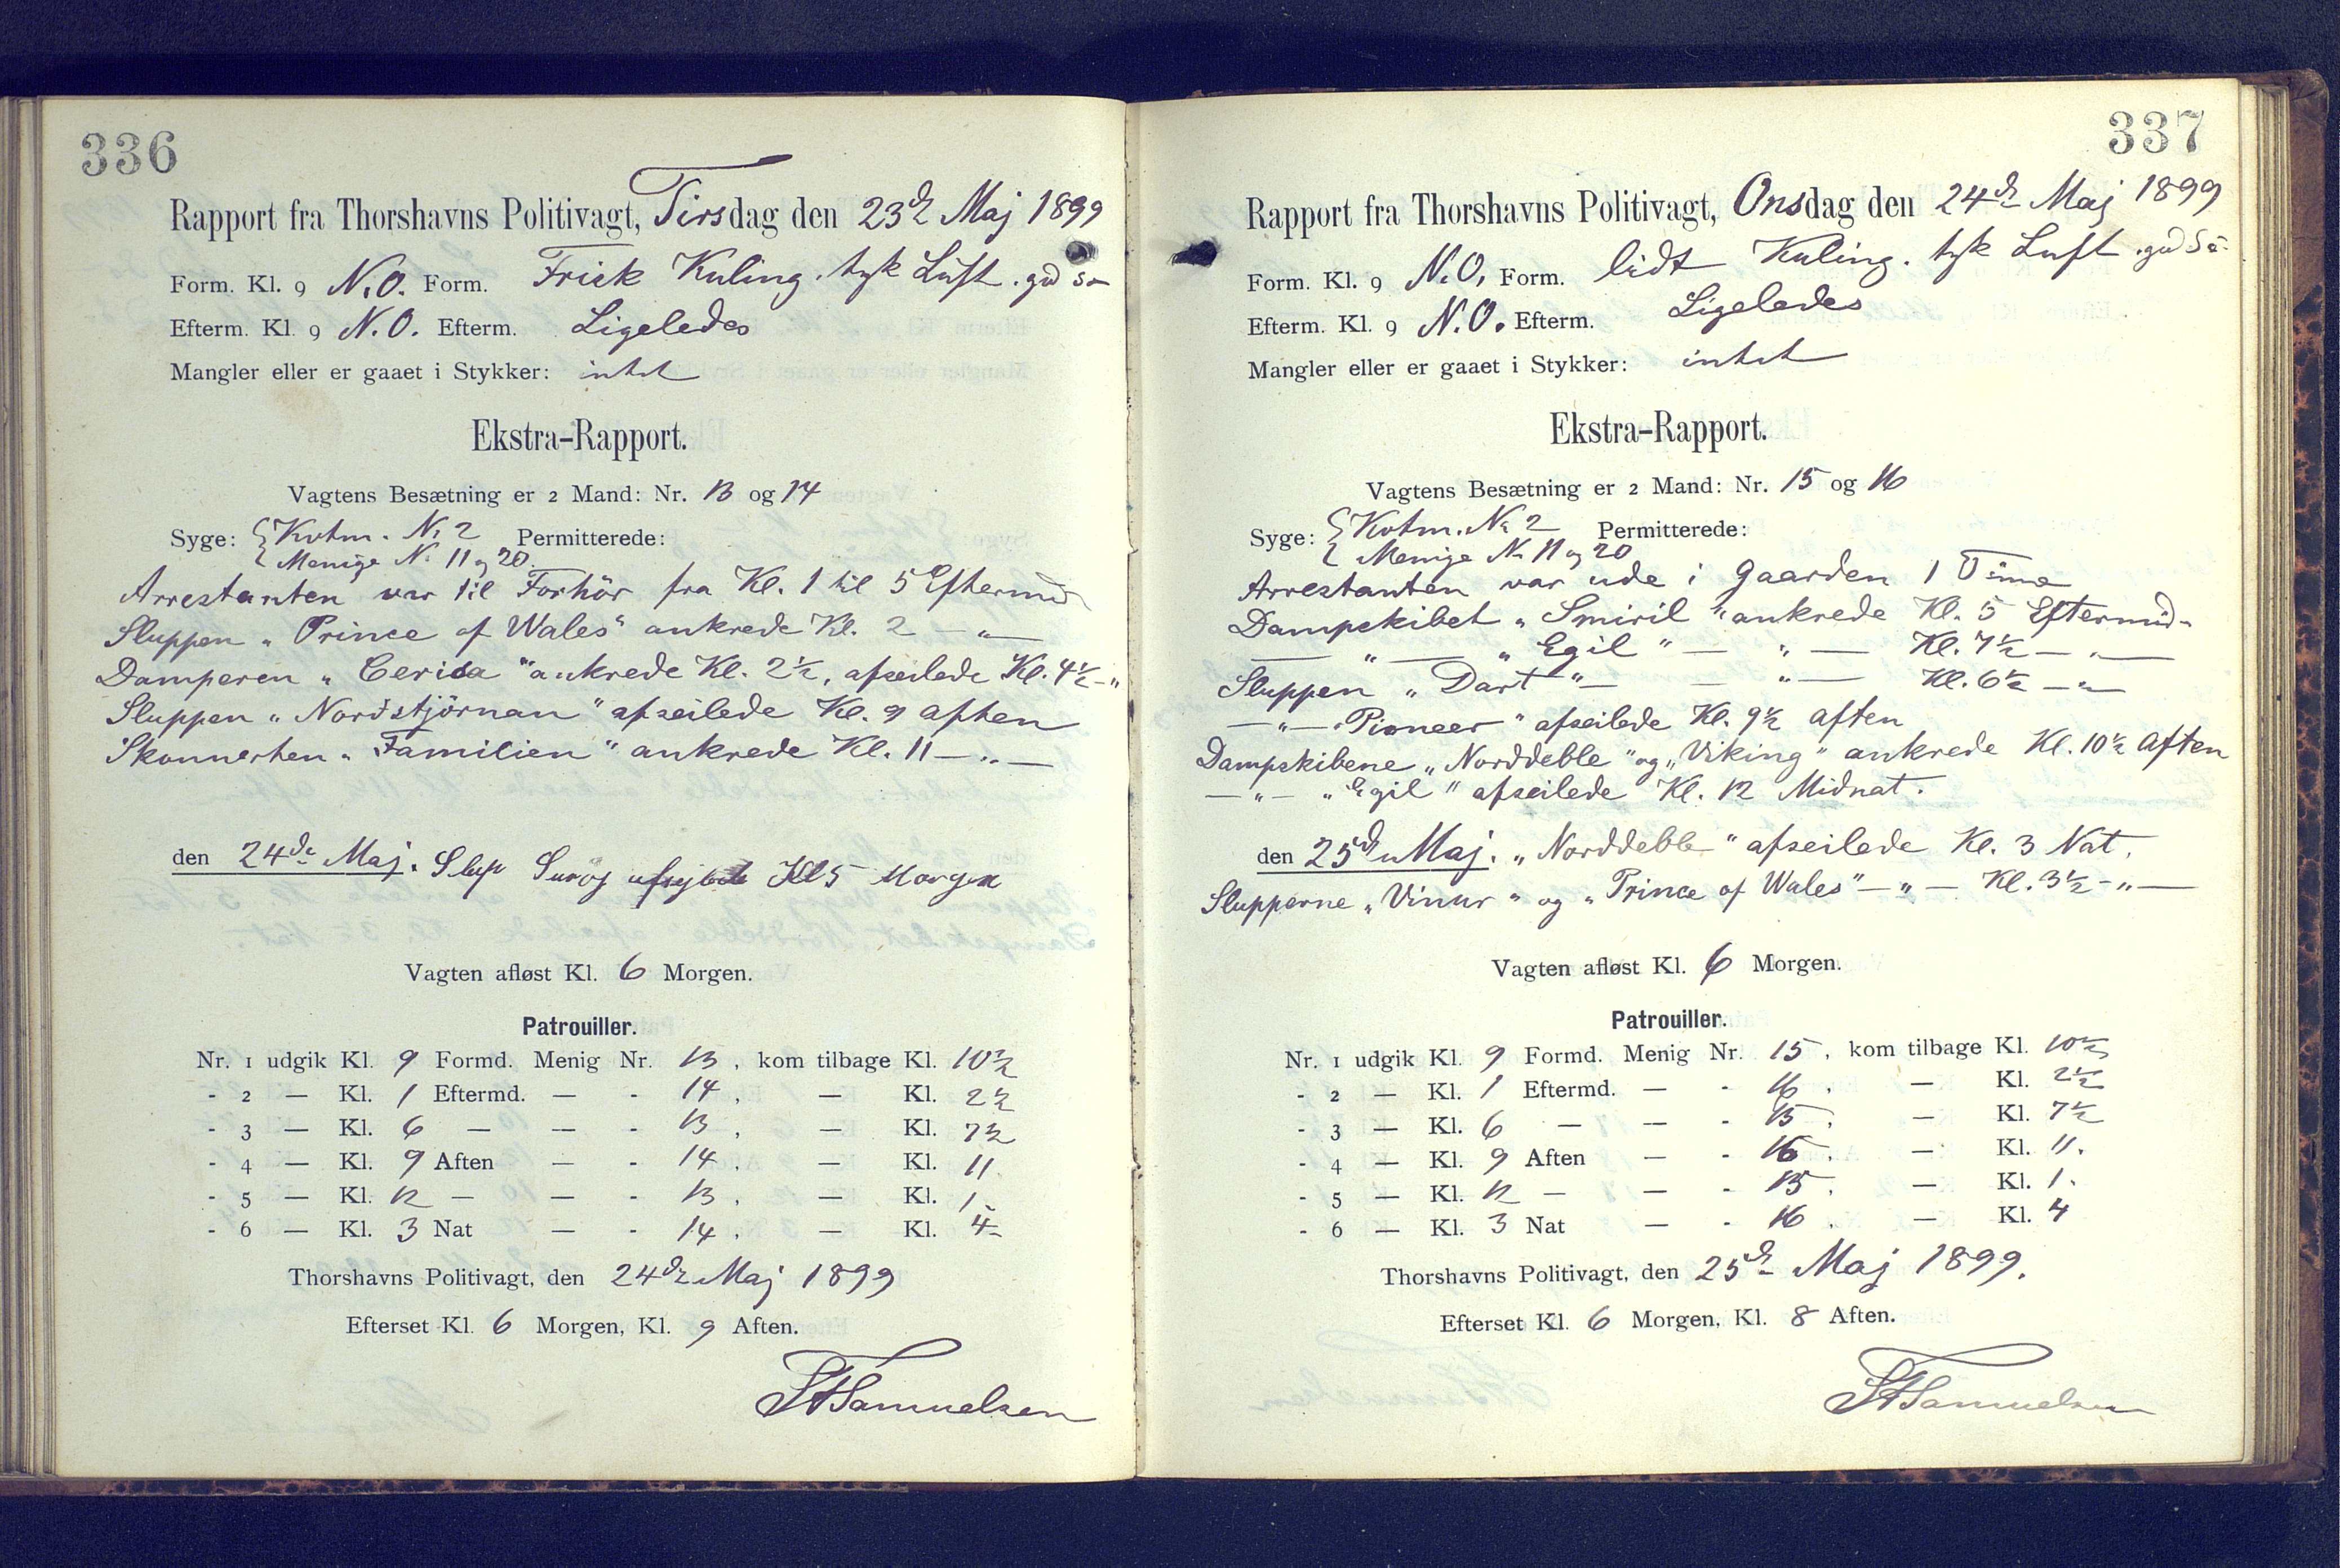 336
Rapport fra Thorshavns Politivagt, Tirsdag den 23de Maj 1899
Form. Kl. 9 N.O. Form. Frisk Kuling. tyk Luft. gd Sö
Efterm. Kl. 9 N.O. Efterm. Ligeledes
Mangler eller er gaaet i Stykker: intet
Ekstra-Rapport.
Vagtens Besætning er 2 Mand: Nr. 13 og 14
Syge: { Kvtm. Nr 2 Permitterede:
Menige Nr 11 og 20.
Arrestanten var til Forhör fra Kl. 1 til 5 Eftermid
Sluppen „Prince of Wales" ankrede Kl. 2 — „ —
Damperen „Cerisa" ankrede Kl. 2½, afseilede Kl. 4½ — „
Sluppen „Nordstjörnan" afseilede Kl. 9 aften
Skonnerten „Familien" ankrede Kl. 11 — „ —
den 24de Maj. Slup Kl 5 Morgen
Vagten afløst Kl. 6 Morgen.
Patrouiller.
Nr. 1 udgik Kl. 9 Formd. Menig Nr. 13, kom tilbage Kl. 10½
- 2 — Kl. 1 Eftermd. — - 14, — Kl. 2½
- 3 — Kl. 6 — — - 13, — Kl. 7½
- 4 — Kl. 9 Aften — - 14, — Kl. 11.
- 5 — Kl. 12 — — - 13, — Kl. 1.
- 6 — Kl. 3 Nat — - 14, — Kl. 4
Thorshavns Politivagt, den 24de Maj 1899
Efterset Kl. 6 Morgen, Kl. 9 Aften.
Samuelsen
337
Rapport fra Thorshavns Politivagt, Onsdag den 24de Maj 1899
Form. Kl. 9 N.O, Form. lidt Kuling. tyk Luft. gd Sö
Efterm. Kl. 9 N.O. Efterm. Ligeledes
Mangler eller er gaaet i Stykker: intet
Ekstra-Rapport.
Vagtens Besætning er 2 Mand: Nr. 15 og 16
Syge: { Kvtm. Nr 2 Permitterede:
Menige Nr 11 og 20
Arrestanten var ude i Gaarden 1 Time
Dampskibet „Smiril" ankrede Kl. 5 Eftermid-
— „ — „Egil" — „ — Kl. 7½ — „ —
Sluppen „Dart" — — „ — Kl. 6½ — „ —
— „ — „Pioneer" afseilede Kl. 9½ aften
Dampskibene „Norddeble" og „Viking" ankrede Kl. 10½ aften
— „ — „Egil" afseilede Kl. 12 Midnat.
den 25de Maj. „Norddeble" afseilede Kl. 3 Nat.
Slupperne „Vinur" og „Prince of Wales" — „ — Kl. 3½ — „ —
Vagten afløst Kl. 6 Morgen.
Patrouiller.
Nr. 1 udgik Kl. 9 Formd. Menig Nr. 15, kom tilbage Kl. 10½
- 2 — Kl. 1 Eftermd. — - 16, — Kl. 2½
- 3 — Kl. 6 — — - 15, — Kl. 7½
- 4 — Kl. 9 Aften — - 16, — Kl. 11.
- 5 — Kl. 12 — — - 15, — Kl. 1.
- 6 — Kl. 3 Nat — - 16, — Kl. 4
Thorshavns Politivagt, den 25de Maj 1899.
Efterset Kl. 6 Morgen, Kl. 8 Aften.
Samuelsen